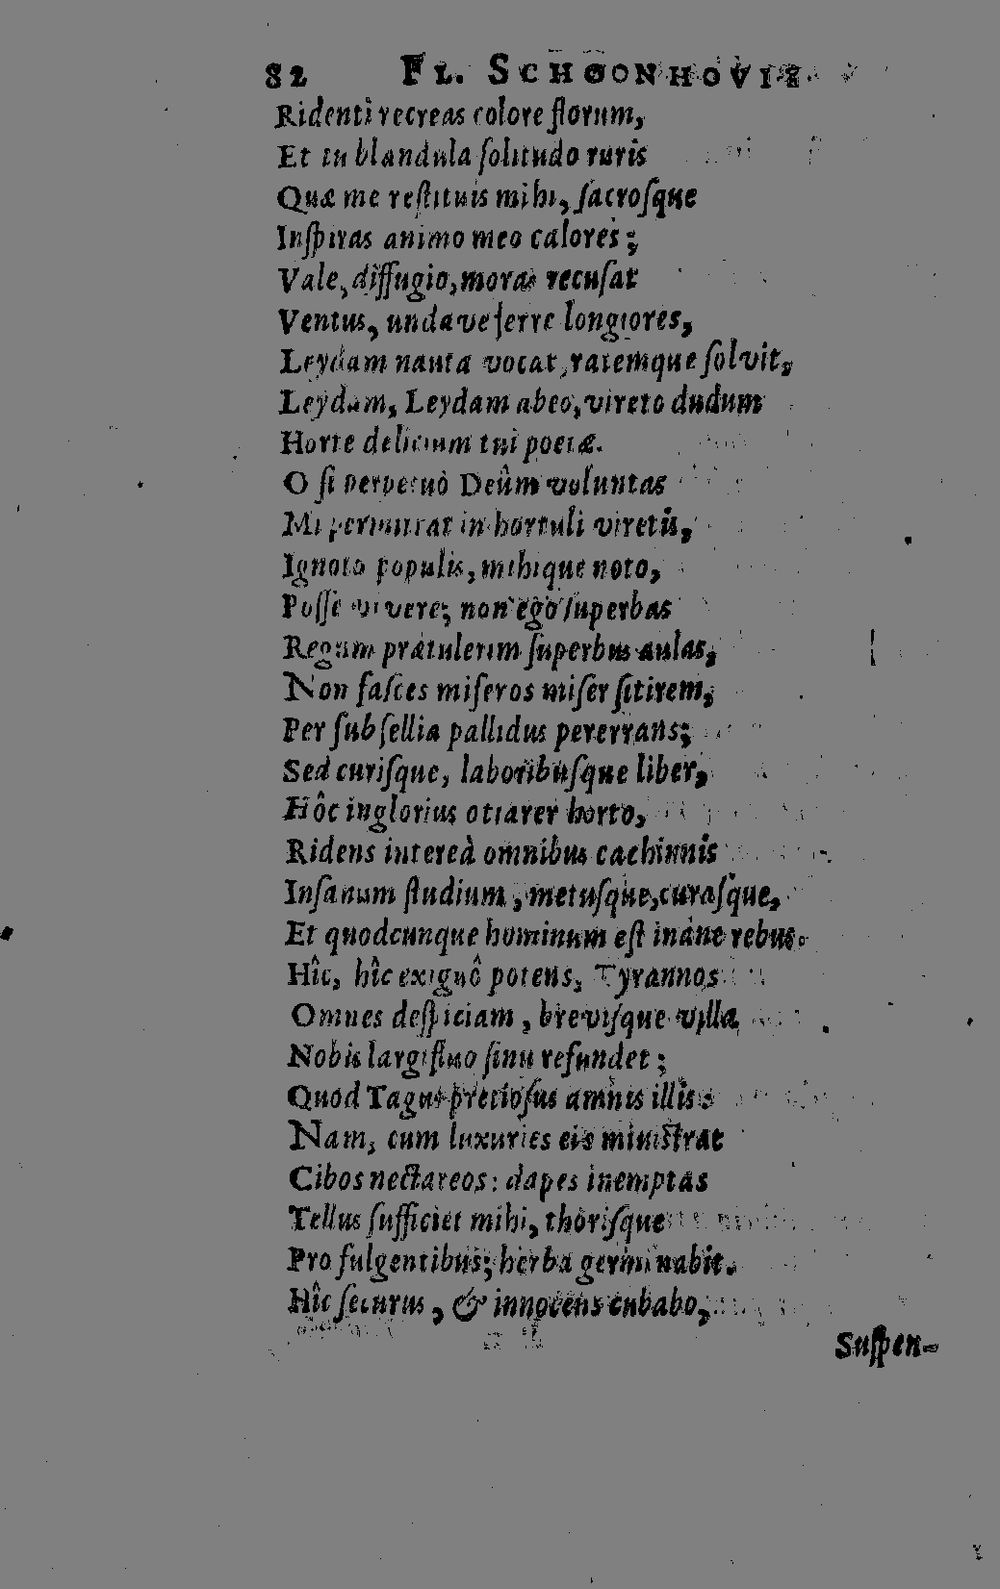 82 FL. SCHOONHOVII
Ridenti recreas colore florum,
Et tu blandula ſolitudo ruris
Quæ me reſtituis mihi, ſacroſque
Inſpiras animo meo calores;
Vale, diffugio, moras recuſat
Ventus, undave ferre longiores,
Leydam nauta vocat, ratemque ſolvit,
Leydam, Leydam abeo, vireto dudum
Horte delicium tui poetæ.
O ſi perpetuò Deûm voluntas
Mi permittat in hortuli viretis,
Ignoto populis, mihique noto,
Poſſe vivere; non ego ſuperbas
Regum prætulerim ſuperbus aulas,
Non faſces miſeros miſer ſitirem,
Per ſubſellia pallidus pererrans;
Sed curiſque, laboribuſque liber,
Hôc inglorius otiarer horto,
Ridens intereà omnibus cachinnis
Inſanum ſtudium, metuſque, curaſque,
Et quodcunque hominum eſt inane rebus.
Hîc, hîc exiguô potens, Tyrannos
Omnes deſpiciam, breviſque villa
Nobis largifluo ſinu refundet;
Quod Tagus pretioſus amnis illis:
Nam, cum luxuries eis miniſtrat
Cibos nectareos: dapes inemptas
Tellus ſufficiet mihi, thoriſque
Pro fulgentibus; herba germinabit.
Hîc ſecurus, & innocens cubabo,
Suſpen-